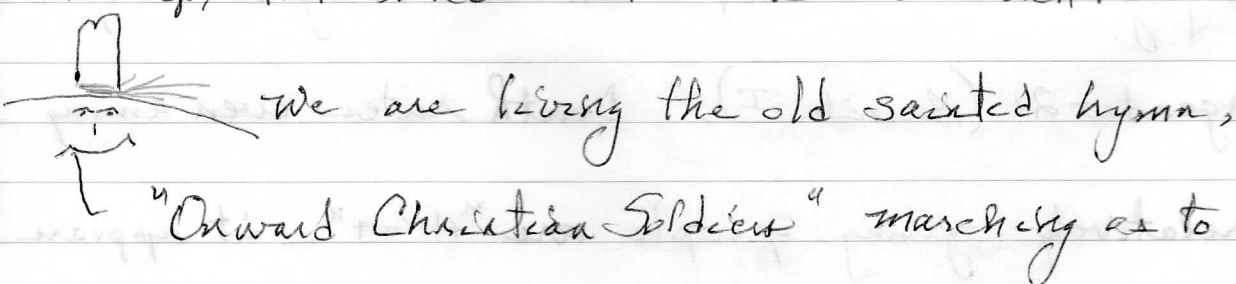 We are living the old sainted hymn,
"Onward Christian Soldiers" marching as to